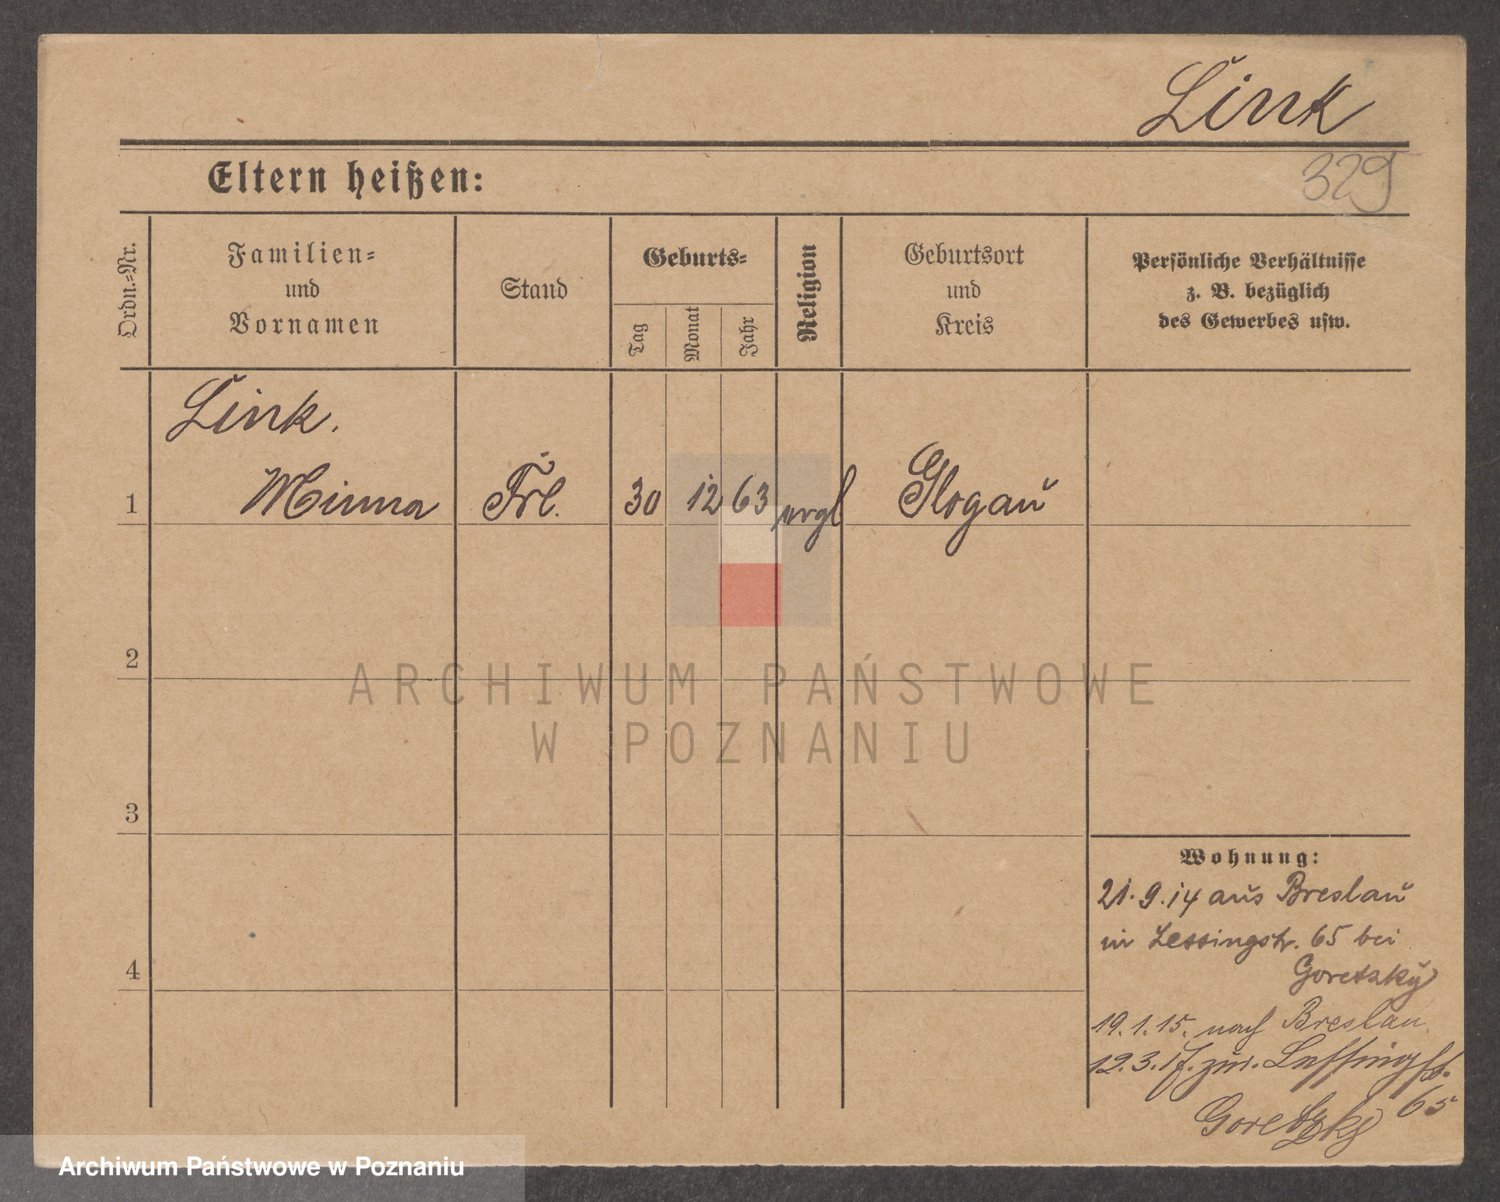 Link
329
Eltern heißen:
Ordn.-Nr.
Familien-
und
Vornamen
Stand
Geburts-
Tag
Monat
Jahr
Religion
Geburtsort
und
Kreis
Persönliche Verhältnisse
z. B. bezüglich
des Gewerbes usw.
Link.
1 Minna Frl. 30 12 63 evgl Glogau
2
3
4
Wohnung:
21.9.14 aus Breslau
in Lessingstr. 65 bei
Goretzky
19.1.15. nach Breslau.
12.3.17. zur. Lessingstr.
65
Goretzky
ARCHIWUM PAŃSTWOWE
W POZNANIU
Archiwum Państwowe w Poznaniu